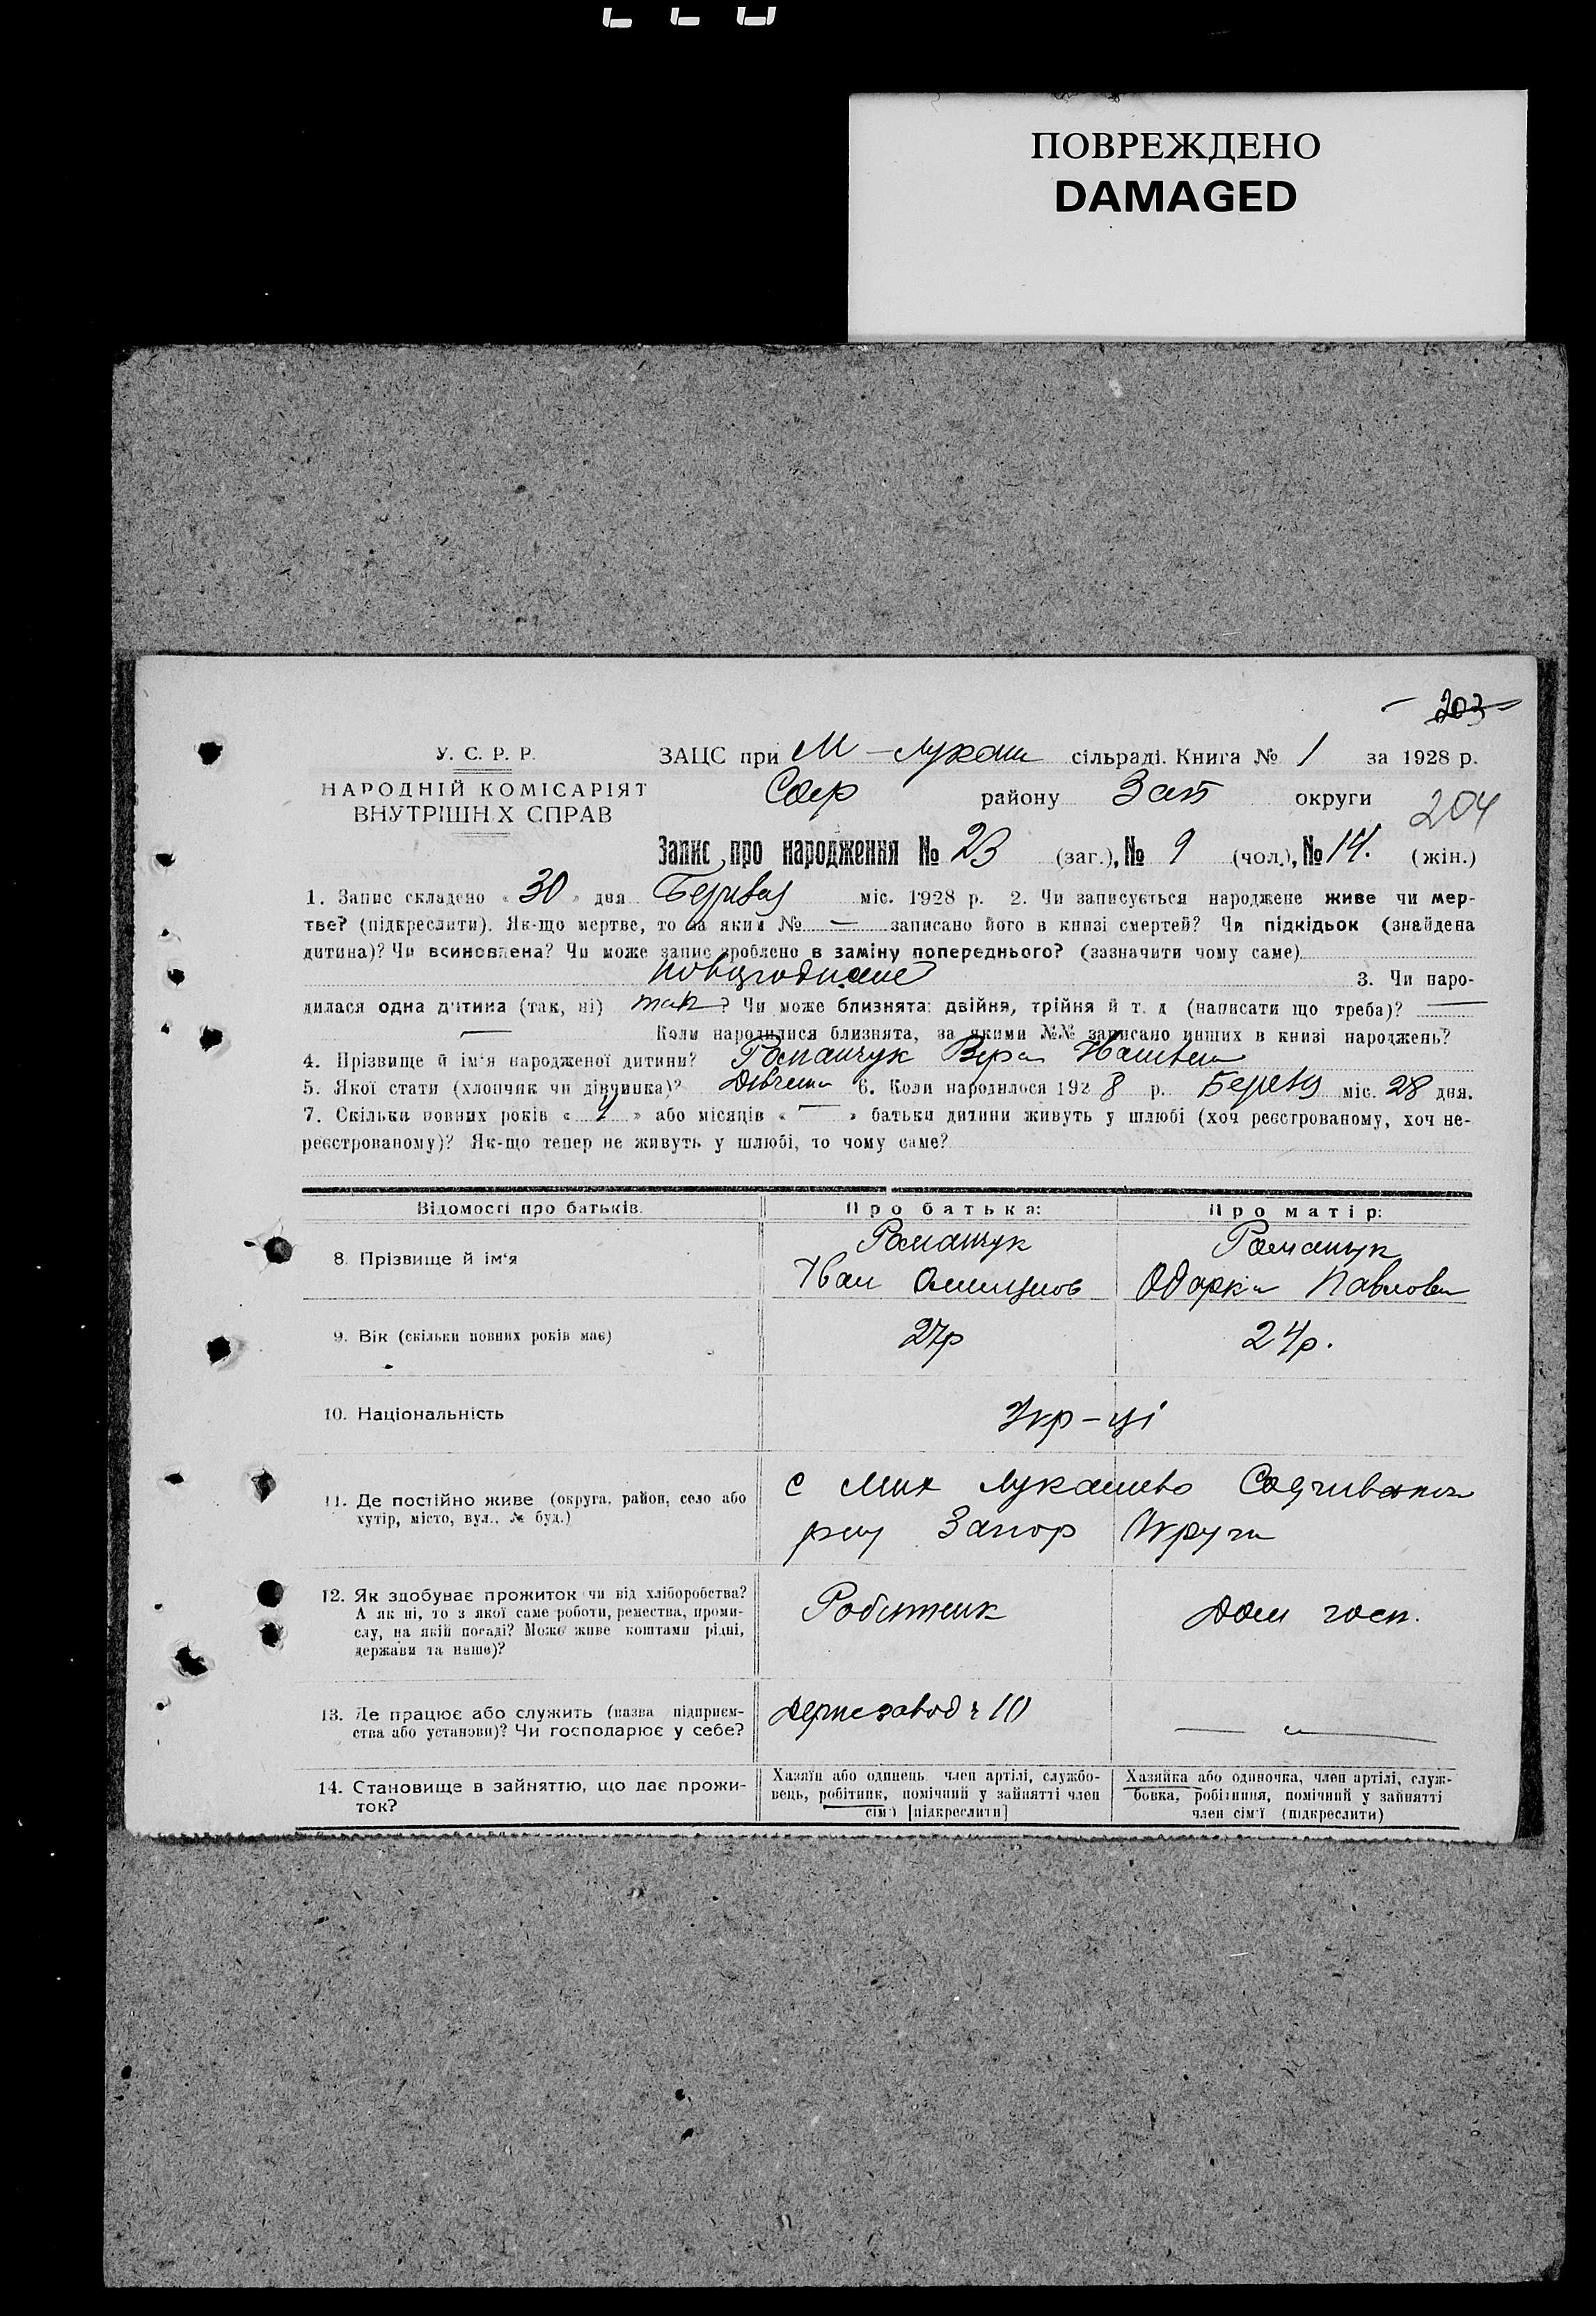 ПОВРЕЖДЕНО
DAMAGED
203
У. С. Р. Р.
НАРОДНІЙ КОМІСАРІЯТ
ВНУТРІШН Х СПРАВ
ЗАЦС при М - Лукаш сільраді. Книга № 1 за 1928 р.
Соф району Зап округи
204
Запис про народження № 23 (заг.), № 9 (чол.), № 14. (жін.)
1. Запис складено « 30 » дня Березня міс. 1928 р. 2. Чи записується народжене живе чи мер-
тве? (підкреслити). Як-що мертве, то за яким № — записано його в книзі смертей? Чи підкідьок (знайдена
дитина)? Чи всиновлена? Чи може запис зроблено в заміну попереднього? (зазначити чому саме)
3. Чи наро-
дилася одна дитина (так, ні) так ? Чи може близнята: двійня, трійня й т. д (написати що треба)? —
— Коли народилися близнята, за якими №№ записано инших в книзі народжень?
4. Прізвище й ім'я народженої дитини? Ромащук Вера Иванівна
5. Якої стати (хлопчик чи дівчинка)? Дівчина 6. Коли народилося 192 8 р. Березня міс. 28 дня.
7. Скільки повних років « » або місяців « — » батьки дитини живуть у шлюбі (хоч реєстрованому, хоч не-
реєстрованому)? Як-що тепер не живуть у шлюбі, то чому саме?
Відомості про батьків.
Про батька:
Про матір:
8. Прізвище й ім'я
Ромащук
Иван
Ромащук
Одарка Павлов
9. Вік (скільки повних років має)
27р
24р.
10. Національність
Укр-ці
11. Де постійно живе (округа, район, село або
хутір, місто, вул., № буд.)
с Мих Лукашево
Запор Округи
12. Як здобуває прожиток чи від хліборобства?
А як ні, то з якої саме роботи, ремества, проми-
слу, на якій посаді? Може живе коштами рідні,
держави та инше)?
Робітник
Дом госп.
13. Де працює або служить (назва підприєм-
ства або установи)? Чи господарює у себе?
Держзавод ч 10
14. Становище в зайняттю, що дає прожи-
ток?
Хазяїн або одинець член артілі, службо-
вець, робітник, помічний у зайнятті член
сім'ї [підкреслити]
Хазяйка або одиночка, член артілі, служ-
бовка, робітниця, помічний у зайнятті
член сім'ї (підкреслити)